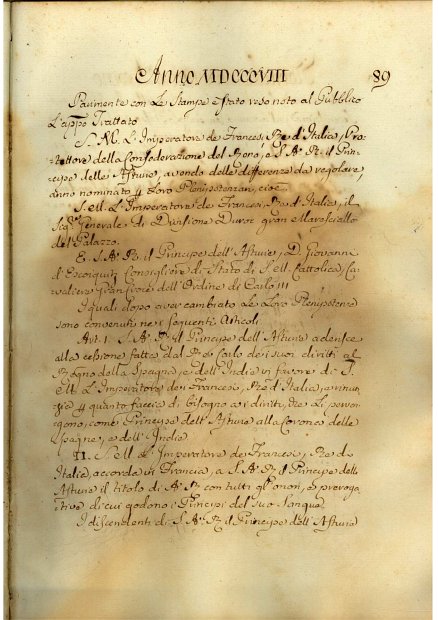 Anno MDCCCVIII 89
Parimente con le Stampe è stato reso noto al Pubblico
l'appo Trattato
S. M. l'Imperatore de Francesi, Re d'Italia, Pro-
tettore della Confederazione del Reno, e S. A. R. il Prin-
cipe delle Asturie, avendo delle differenze da regolare,
anno nominato p loro Plenipotenziari, cioè
S. M. l'Imperatore de Francesi, Re d'Italia, il
Sigr Generale di Divisione Duroc gran Maresciallo
del Palazzo.
E S. A. R. il Principe dell'Asturie, D. Giovanni
d'Escoiquiz Consigliere di Stato di S. M. Cattolica, Ca-
valiere Gran Croce dell'Ordine di Carlo III
I quali dopo aver cambiato le Loro Plenipotenze
sono convenuti ne seguenti Articoli
Art. I. S. A. R. il Principe dell'Asturie aderisce
alla cessione fatta dal Re Carlo de suoi diritti al
Regno della Spagna, e dell'Indie in favore di S.
M. l'Imperatore dei Francesi, Re d'Italia, e rinun-
zia p quanto faccia di bisogno ai diritti, che li perven-
gono, come Principe dell'Asturie alla Corona delle
Spagne, e dell'Indie
II. S. M. l'Imperatore de Francesi, Re d'
Italia, accorda in Francia, a S. A. R. il Principe delle
Asturie il titolo di A. R. con tutti gl'onori, e preroga-
tive di cui godono i Principi del suo Sangue
I discendenti di S. A. R. il Principe dell'Asturie